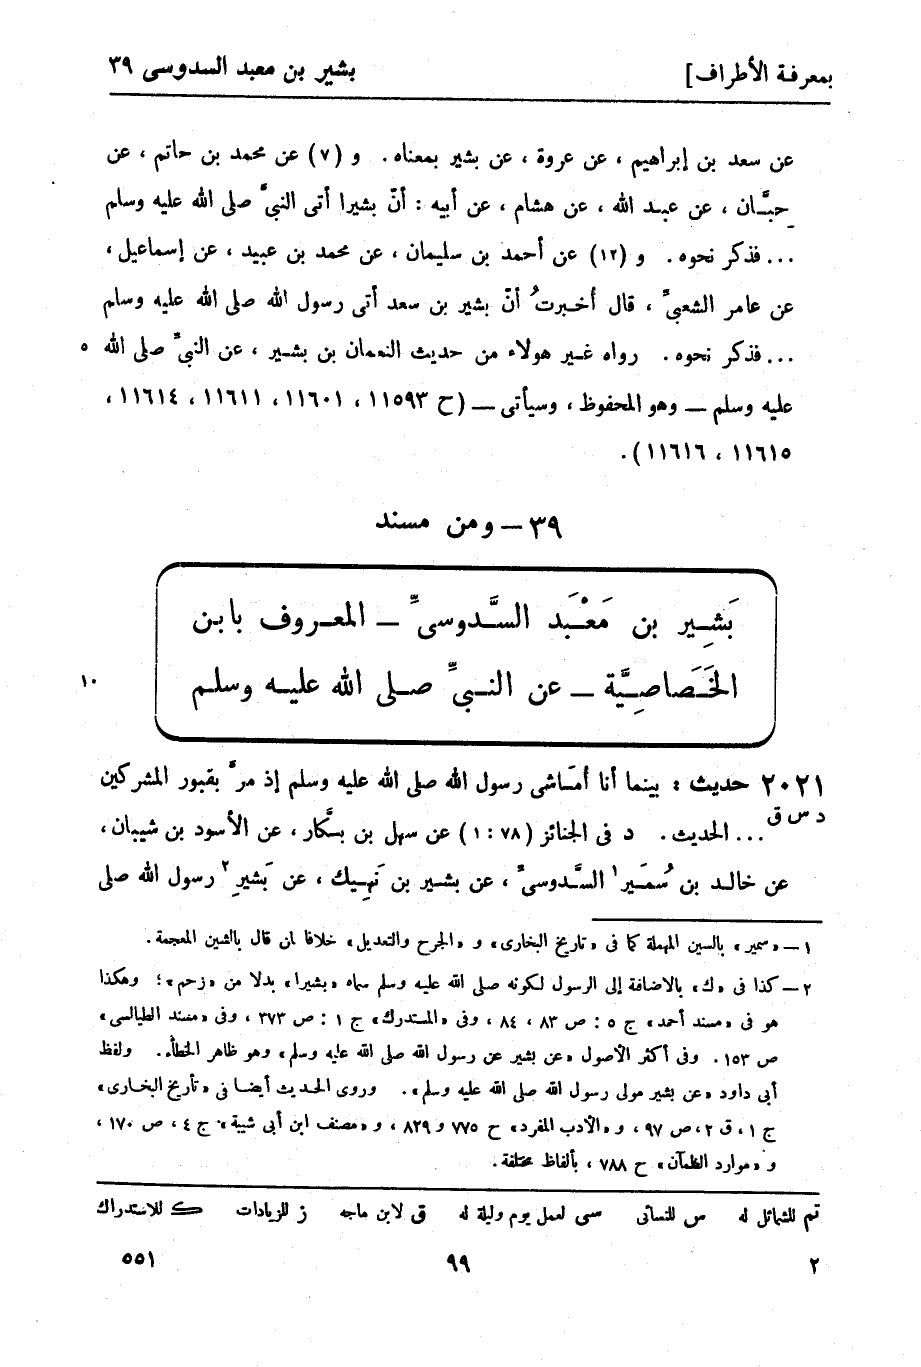 بمعرفة الأطراف] بشير بن معبد السدوسى ٣٩
عن سعد بن إبراهيم ، عن عروة ، عن بشير بمعناه . و (٧) عن محمد بن حاتم ، عن
حِبَّـان ، عن عبـد الله ، عن هشام ، عن أبيه : أنّ بشيرا أتى النبيَّ صلى الله عليه وسلم
... فذكر نحوه . و (١٢) عن أحمد بن سليمان ، عن محمد بن عبيد ، عن إسماعيل ،
عن عامر الشعبيِّ ، قال أخـبرتُ أنّ بشير بن سعد أتى رسول الله صلى الله عليه وسلم
... فذكر نحوه . رواه غـير هولاء من حديث النعمان بن بشير ، عن النبيِّ صلى الله ٥
عليه وسلم ــ وهو المحفوظ ، وسيأتى ــ (ح ١١٥٩٣ ، ١١٦٠١ ، ١١٦١١ ، ١١٦١٤ ،
١١٦١٥ ، ١١٦١٦) .
٣٩ ــ ومن مسند
بَشِـير بن مَعْبَد السَّـدوسىِّ ــ المعـروف بابـن
الخَصَاصِـيَّة ــ عن النـبيِّ صـلى الله عليـه وسـلم ١٠
٢٠٢١ حديث : بينما أنا أمَاشى رسول الله صلى الله عليه وسلم إذ مرَّ بقبور المشركين
د س ق ... الحديث . د فى الجنائز (٧٨ : ١) عن سهل بن بـكَّار ، عن الأسود بن شيبان ،
عن خالـد بن سُمَـير١ السَّدوسىِّ ، عن بشـير بن نَهِـيك ، عن بَشِيرِ٢ رسول الله صلى
١ ــ «سمير» بالسين المهملة كما فى «تاريخ البخارى» و «الجرح والتعديل» خلافا لمن قال بالشين المعجمة .
٢ ــ كذا فى «ك» بالاضافة إلى الرسول لكونه صلى الله عليه وسلم سماه «بشيرا» بدلا من «زحم» ؛ وهكذا
هو فى «مسند أحمد» ج ٥ : ص ٨٣ ، ٨٤ ، وفى «المستدرك» ج ١ : ص ٣٧٣ ، وفى «مسند الطيالسى»
ص ١٥٣ . وفى أكثر الأصول «عن بشير عن رسول الله صلى الله عليه وسلم» وهو ظاهر الخطأ . ولفظ
أبى داود «عن بشير مولى رسول الله صلى الله عليه وسلم» . وروى الحديث أيضا فى «تأريخ البخارى»
ج ١ ، ق ٢ ، ص ٩٧ ، و «الأدب المفرد» ح ٧٧٥ و ٨٢٩ ، و «مصنف ابن أبى شيبة» ج ٤ ، ص ١٧٠ ،
و «موارد الظمآن» ح ٧٨٨ ، بألفاظ مختلفة .
تم للشمائل له س للنسائى سى لعمل يوم وليلة له ق لابن ماجه ز للزيادات ك للاستدراك
٢ ٩٩ ٥٥١